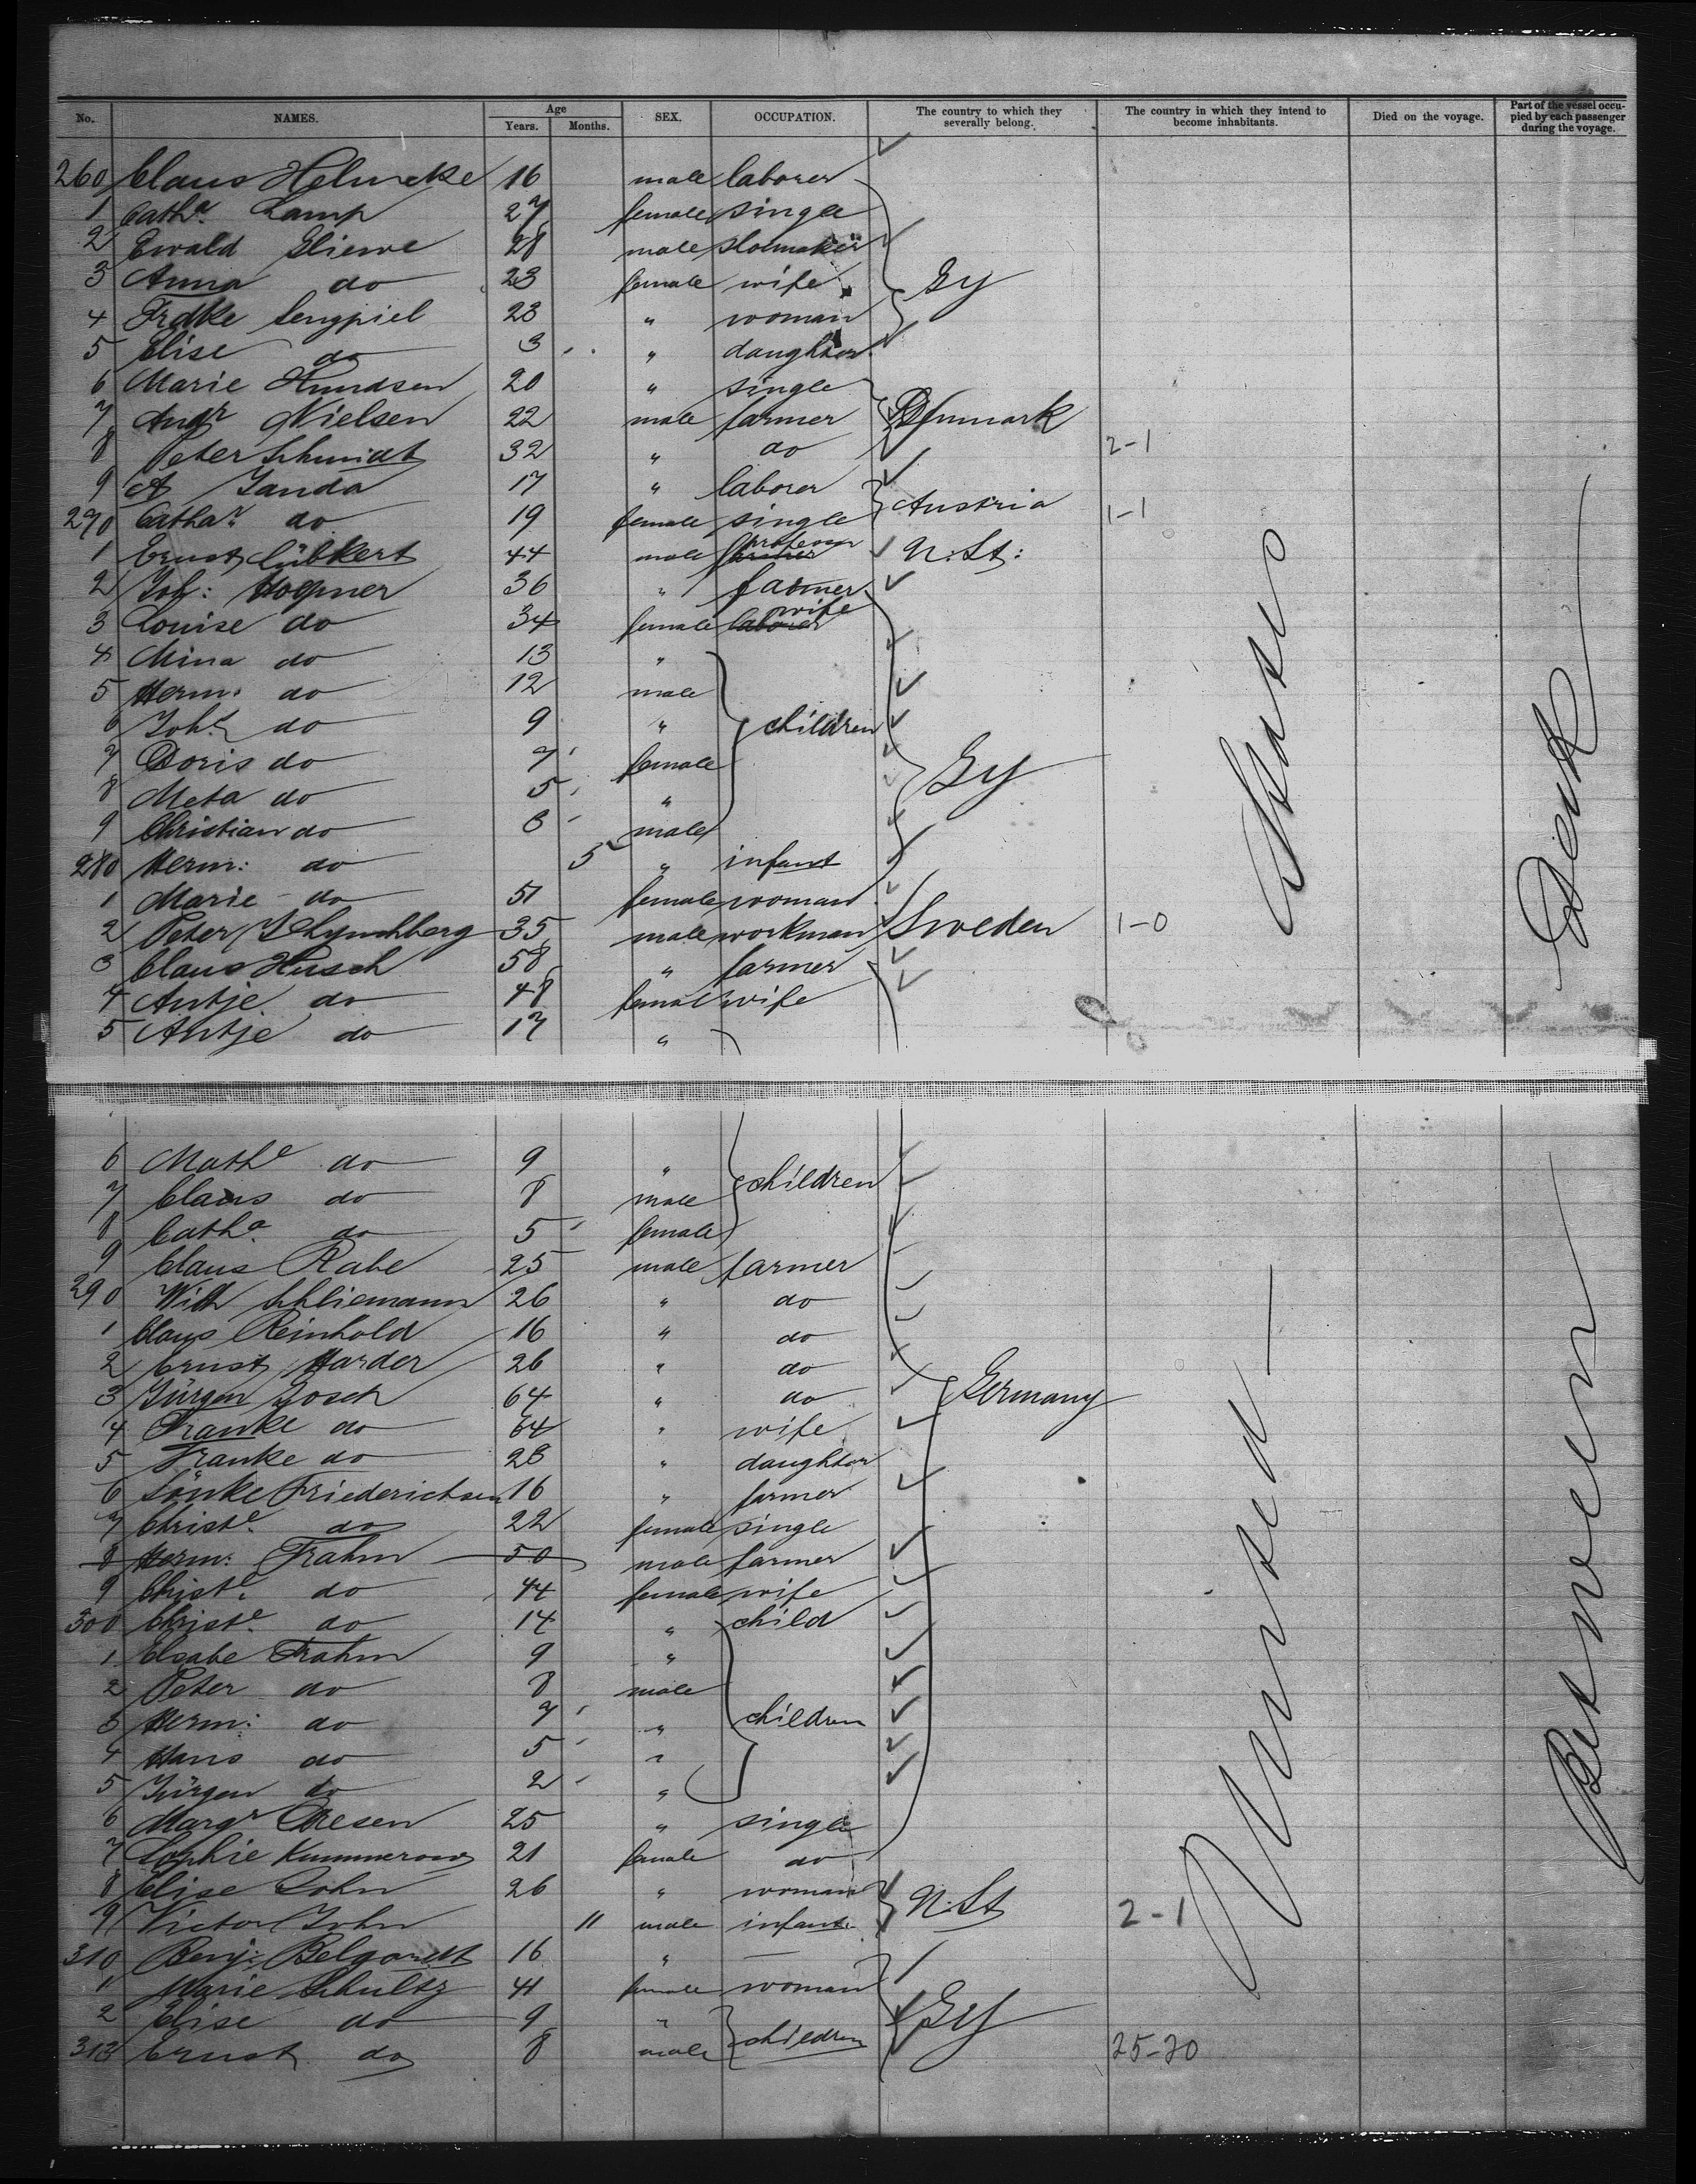 No. NAMES. Age Years. Months. SEX. OCCUPATION. The country to which they severally belong. The country in which they intend to become inhabitants. Died on the voyage. Part of the vessel occupied by each passenger during the voyage.
260 Claus Helmcke 16 male laborer
1 Cathe. Lamp 27 female single
2 Ewald Gliewe 28 male shoemaker
3 Anna do 23 female wife Gy
4 Frdke Sengpiel 23 " woman
5 Elise do 3 " daughter
6 Marie Knudsen 20 " single
7 Andr Nielsen 22 male farmer Denmark
8 Peter Schmidt 32 " do 2-1
9 A Janda 17 " laborer
270 Catha. do 19 female single Austria 1-1
1 Ernst Lübkert 44 male professor U. St:
2 Joh: Höpner 36 " farmer
3 Louise do 34 female laborer wife
4 Mina do 13 "
5 Herm. do 12 male
6 Johs do 9 " children
7 Doris do 7 female Gy
8 Meta do 5 "
9 Christian do 3 male
280 Herm: do 5 " infant
1 Marie do 51 female woman
2 Peter Lynchberg 35 male workman Sweden 1-0
3 Claus Husch 58 " farmer
4 Antje do 48 female wife
5 Antje do 17 "
States
Deck
6 Mathe do 9 " children
7 Claus do 8 male
8 Catha do 5 female
9 Claus Rabe 25 male farmer
290 Wilh Schliemann 26 " do
1 Claus Reinhold 16 " do
2 Ernst Harder 26 " do
3 Jürgen Gosch 64 " do Germany
4 Franke do 64 " wife
5 Franke do 23 " daughter
6 Sönke Friederichsen 16 " farmer
7 Christe. do 22 female single
8 Herm: Frahm 50 male farmer
9 Christe. do 44 female wife
300 Christe. do 14 " child
1 Elsabe Frahm 9 "
2 Peter do 8 male
3 Herm: do 7 " children
4 Hans do 5 "
5 Jürgen do 2 "
6 Margr Thesen 25 " single
7 Sophie Kummerow 21 female do
8 Elise John 26 " woman U. St
9 Victor John 11 male infant 2-1
310 Benj: Belgardt 16 " —
1 Marie Schultz 41 female woman
2 Elise do 9 " children Gy
313 Ernst do 8 male 25-20
United
Between